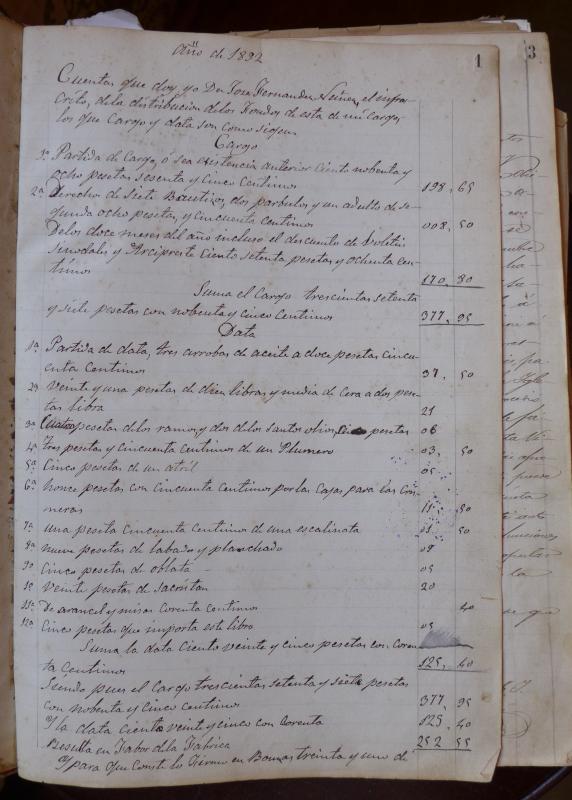 Año de 1892
1
3
Cuentas que doy, yo Dn Jose Hernandez Nuñez, el infra-
crito, dela distribucion delos Fondos de esta de mi cargo,
los que Cargo y data son como siguen
Cargo
1ª Partida de Cargo, ó sea existencia anterior ciento nobenta y
ocho pesetas sesenta y cinco Centimos 198, 65
2ª Derechos de siete Bautizos, dos parbulos y un adulto de se-
gunda ocho pesetas, y cincuenta centimos 008, 50
Delos doce meses del año incluso el descuento de
sinodales y Arcipreste ciento setenta pesetas y ochenta cen-
timos 170, 80
Suma el Cargo trescientas setenta
y siete pesetas con nobenta y cinco Centimos 377, 95
Data
1ª Partida de data, tres arrobas de aceite a doce pesetas cincu-
enta Centimos 37, 50
2ª Veinte y una pesetas de diez libras y media de Cera a dos pese-
tas libra 21
3ª Cuatro pesetas delos ramos y dos delos santos olios, pesetas 06
4ª tres pesetas y Cincuenta Centimos de un Plumero 03, 50
5ª Cinco pesetas de un atril 05
6ª honce pesetas con Cincuenta Centimos por las Cajas para las
neras 11 50
7ª una peseta Cincuenta Centimos de una escalinata 01 50
8ª nueve pesetas de labado y planchado 09
9ª Cinco pesetas de oblata 05
10 Veinte pesetas de sacristan 20
11ª De arancel y misas Corenta Centimos 40
12ª Cinco pesetas que importa este libro 05
Suma la data Ciento veinte y cinco pesetas con Coren-
ta Centimos 125, 40
Siendo pues el Cargo trescientas setenta y siete pesetas
con nobenta y cinco Centimos 377, 95
y la data Ciento veinte y cinco con Corenta 125, 40
Resulta en Fabor dela Fabrica 252 55
y para que Conste lo Firmo en treinta y uno de